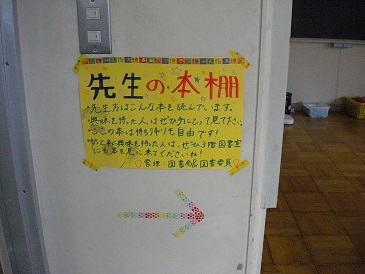 先生の・本・棚
・先生方はこんな本を読んでいます。
・興味を持った人はぜひ手にとって見て下さい。
・ここの本は持ち帰りも自由です!
・もっと本に興味を持った人は、ぜひ3階図書室
にも本を見に来てくださいね!
管理 図書局&図書委員